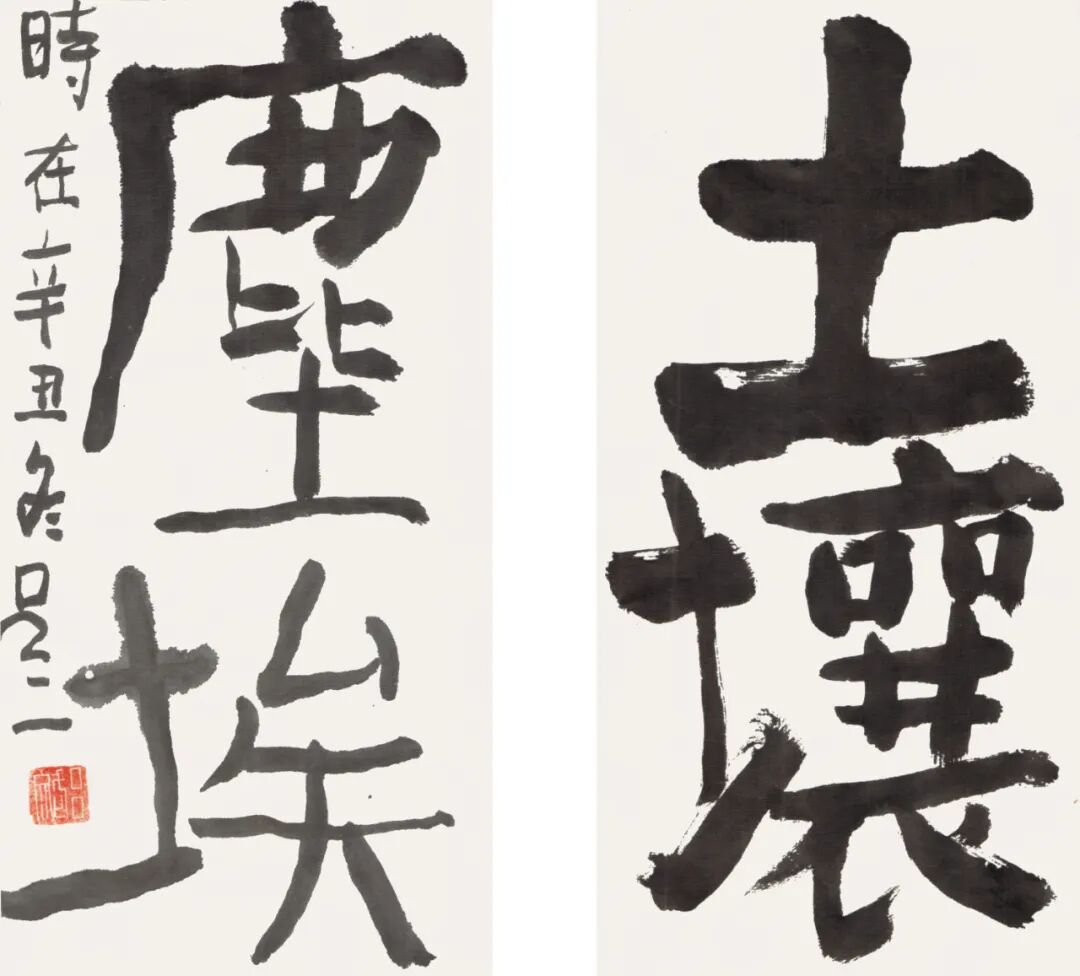 土壤
塵埃
時在辛丑冬吕三